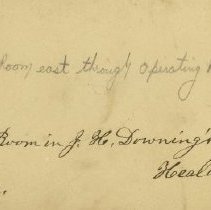 Room east through operating
Room in J. H. Downing's
Heal